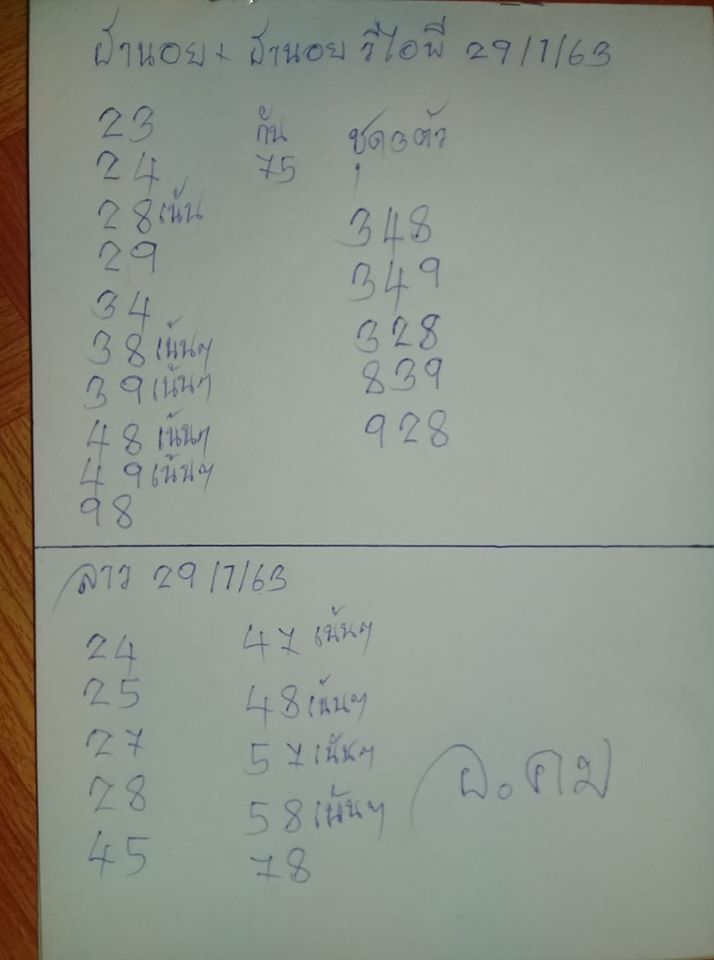 ฮานอย + ฮานอย วีไอพี 29/7/63
23
24
28 เน้น
29
34
38 เน้นๆ
39 เน้นๆ
48 เน้นๆ
49 เน้นๆ
98
กัน
75
ชุด 3 ตัว
348
349
328
839
928
ลาว 29/7/63
24
25
27
28
45
47 เน้นๆ
48 เน้นๆ
57 เน้นๆ
58 เน้นๆ
78
อ.คม